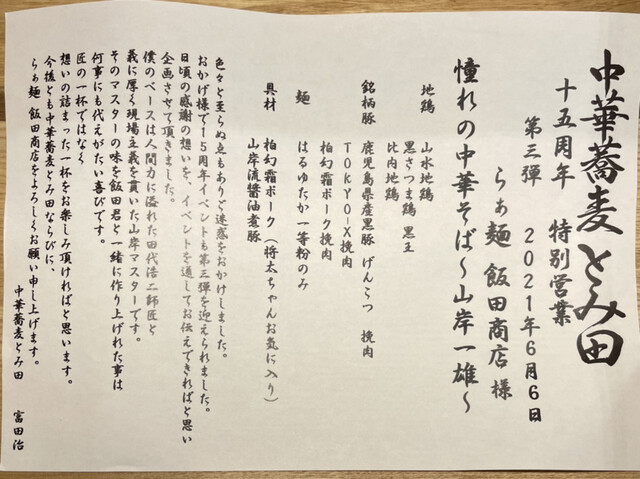 中華蕎麦とみ田
十五周年 特別営業
第三弾 2021年6月6日
らぁ麺 飯田商店様
憧れの中華そば〜山岸一雄〜
地鶏 山水地鶏
黒さつま鶏 黒王
比内地鶏
銘柄豚 鹿児島県産黒豚 げんこつ 挽肉
TOKYO-X挽肉
柏幻霜ポーク挽肉
麺 はるゆたか一等粉のみ
具材 柏幻霜ポーク(将太ちゃんお気に入り)
山岸流醤油煮豚
色々と至らぬ点もありご迷惑をおかけしました。
おかげ様で15周年イベントも第三弾を迎えられました。
日頃の感謝の想いを、イベントを通してお伝えできればと思い
企画させて頂きました。
僕のベースは人間力に溢れた田代浩二師匠と
義に厚く現場主義を貫いた山岸マスターです。
そのマスターの味を飯田君と一緒に作り上げれた事は
何事にも代えがたい喜びです。
匠の一杯ではなく
想いの詰まった一杯をお楽しみ頂ければと思います。
今後とも中華蕎麦とみ田ならびに、
らぁ麺 飯田商店をよろしくお願い申し上げます。
中華蕎麦とみ田 富田治